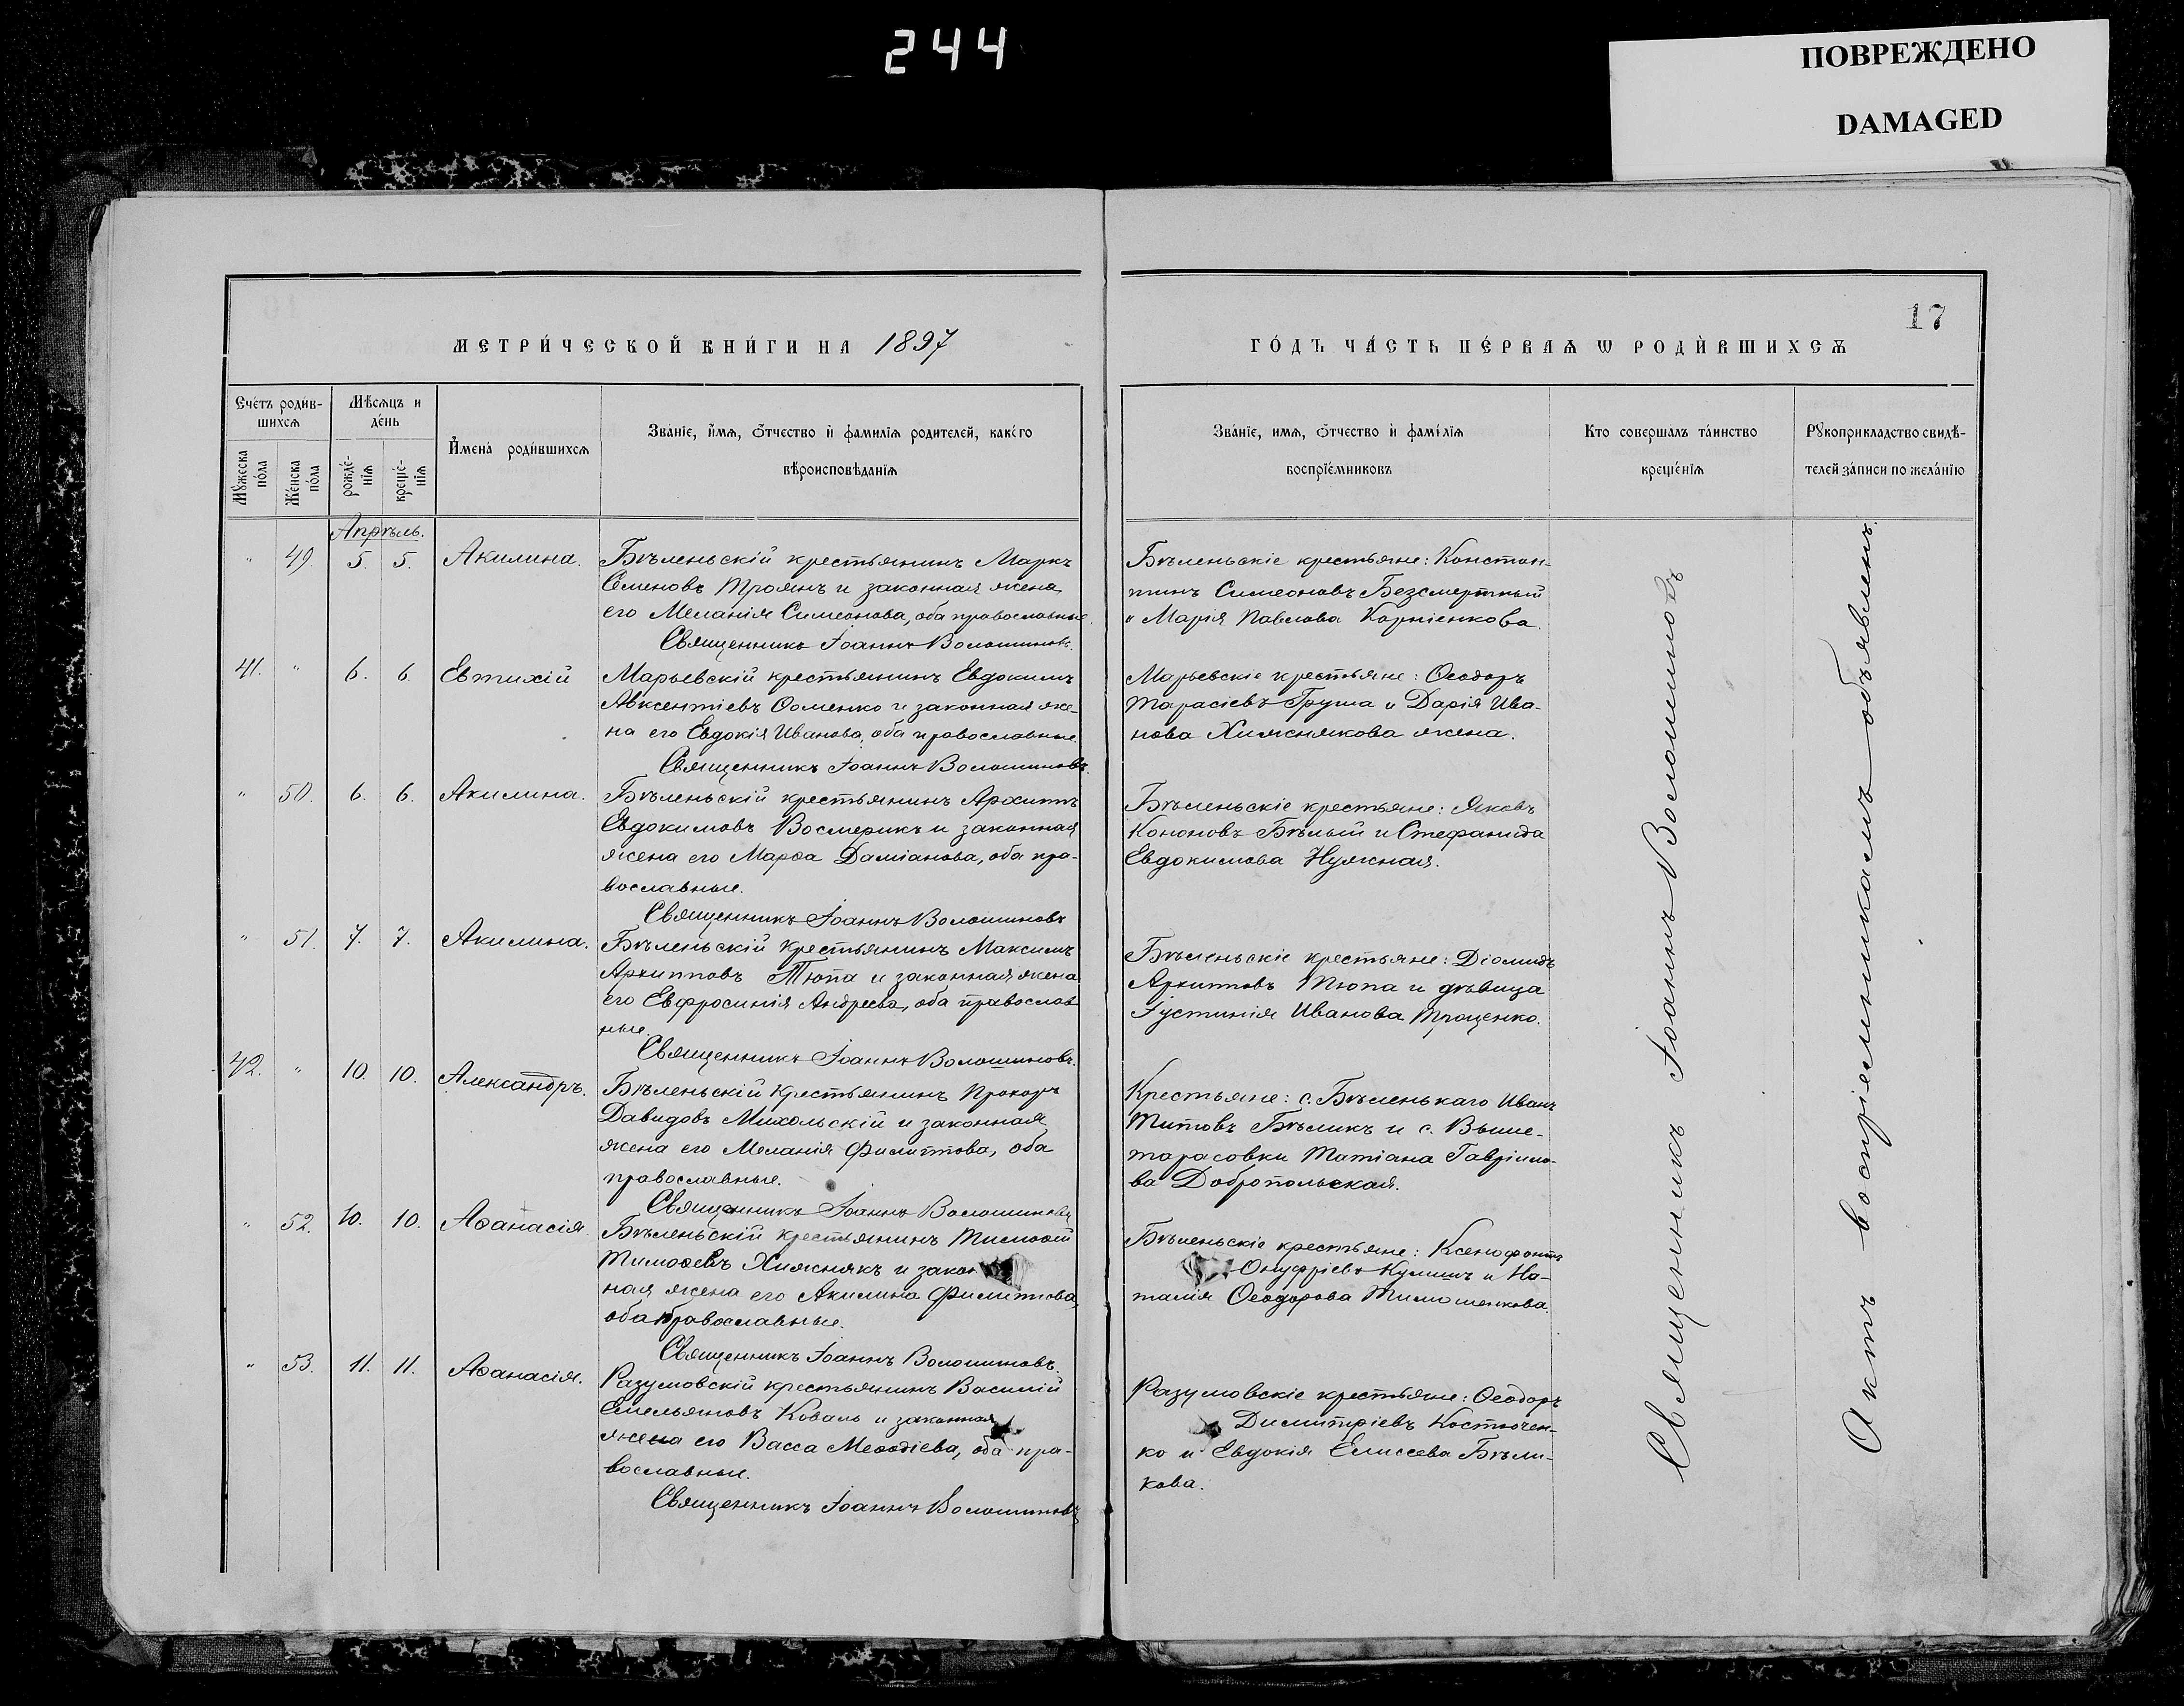 244
ПОВРЕЖДЕНО
DAMAGED
17
МЕТРИ́ЧЕСКОЙ КНИ́ГИ НА 1897
ГО́ДЪ ЧА́СТЬ ПЕ́РВАѦ Ѡ РОДИ́ВШИХСѦ
Сче́тъ роди́в-
шихсѧ
Мѣ́сѧцъ и
де́нь
Мꙋ́жеска
по́ла
Же́нска
по́ла
рожде́-
нїѧ
креще́-
нїѧ
И҆мена̀ роди́вшихсѧ
Зва́нїе, и҆́мѧ, ѻ҆́тчество и҆ фами́лїѧ роди́телей, како́го
вѣроисповѣ́данїѧ
Зва́нїе, имѧ, ѻ҆́тчество и҆ фамі́лїѧ
воспрїе́мниковъ
Кто соверша́лъ та́инство
креще́нїѧ
Рꙋкоприкла́дство свидѣ́-
телей за́писи по жела́нїю
Апрѣль.
" 49. 5. 5. Акилина.
Бѣленьскій крестьянинъ Маркъ
Семеновъ Троянъ и законная жена
его Меланія Симеонова, оба православные.
Священникъ Іоаннъ Волошиновъ.
Бѣленьскіе крестьяне: Констан-
тинъ Симеоновъ Безсмертный
и Марія Павлова Корніенкова.
41. " 6. 6. Евтихій
Марьевскій крестьянинъ Евдокимъ
Авксентіевъ Ѳоменко и законная же-
на его Евдокія Иванова, оба православные.
Священникъ Іоаннъ Волошиновъ.
Марьевскіе крестьяне: Ѳеодоръ
Тарасіевъ Груша и Дарія Ива-
нова Хижснякова жена.
" 50. 6. 6. Акилина.
Бѣленьскій крестьянинъ Архиппъ
Евдокимовъ Восмерикъ и законная
жена его Марѳа Даміанова, оба пра-
вославные.
Священникъ Іоаннъ Волошиновъ
Бѣленьскіе крестьяне: Яковъ
Кононовъ Бѣлый и Стефанида
Евдокимова Нужная.
" 51. 7. 7. Акилина.
Бѣленьскій крестьянинъ Максимъ
Архипповъ Тюпа и законная жена
его Евфросинія Андреева, оба православ
ные.
Священникъ Іоаннъ Волошиновъ.
Бѣленьскіе крестьяне: Діомидъ
Архипповъ Тюпа и дѣвица
Іустинія Иванова Троценко.
42. " 10. 10. Александръ.
Бѣленьскій крестьянинъ Прохоръ
Давидовъ Михольскій и законная
жена его Меланія Филиппова, оба
православные.
Священникъ Іоаннъ Волошиновъ
Крестьяне: с. Бѣленькаго Иванъ
Титовъ Бѣликъ и с. Выше-
тарасовки Татіана Гавріило-
ва Добропольская.
" 52. 10. 10. Аѳанасія
Бѣленьскій крестьянинъ Тимоѳей
Тимоѳеевъ Хижснякъ и закон
ная жена его Акилина Филиппова,
оба православные.
Священникъ Іоаннъ Волошиновъ.
Бѣленьскіе крестьяне: Ксенофонтъ
Онуфріевъ Кулишъ и На-
талія Ѳеодорова Тимошенкова.
" 53. 11. 11. Аѳанасія.
Разумовскій крестьянинъ Василій
Емельяновъ Коваль и законная
жена его Васса Меѳодіева, оба пра-
вославные.
Священникъ Іоаннъ Волошиновъ
Разумовскіе крестьяне: Ѳеодоръ
Димитріевъ Костючен-
ко и Евдокія Елисеева Бѣли-
кова.
Священникъ Іоаннъ Волошиновъ
Актъ воспріемникамъ объявленъ.